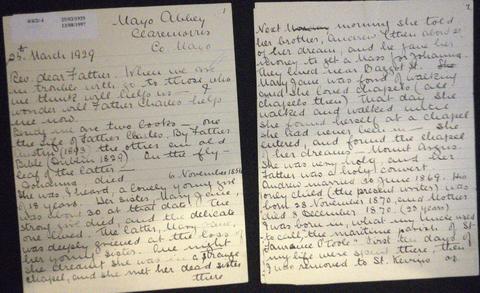 25/02/1935
13/08/1997
Mayo Abbey
Claremorris
Co. Mayo
25th March 1929
Rev. dear Father, When we are
in trouble with go to those who
we think will help us — I
wonder will Father Charles help
me now.
Beside me are two books — one
the life of Father Charles. By Father
Austin (1893) the other an old
Bible (Dublin 1829) On the fly-
leaf of the latter
Johanna died 6 November 1856
She was I heard, a lonely young girl
of 18 years. Her sister, Mary Jane
was about 20 at that date. The
strong girl died and the delicate
one lived. The latter, Mary Jane,
was deeply grieved at the loss of
her young sister. One night
she dreamt she was in a strange
chapel, and she met her dead sister
there
2
Next morning she told
her brother, Andrew (then about 20)
of her dream, and he gave her
money to get a Mass for Johanna.
They lived near Baggot St.
Mary Jane was fond of walking
and she loved chapels (all
chapels then) That day she
walked and walked until
she found herself at a chapel
she had never been in — She
entered, and found the chapel
of her dream - Mount Argus.
She was very holy, and her
Father was a holy convert
Andrew married 30 June 1869. His
only child (the present writer) was
born 28 November 1870, and Mother
died 8 December 1870. (23 years)
I was born in, what my uncle used
to call the maritime parish of St
Laurence O'Toole. First ten days of
my life were spent there, then
I was removed to St. Kevins or